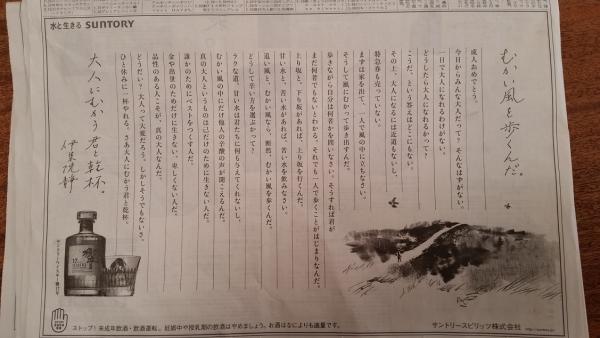 水と生きる SUNTORY
むかい風を歩くんだ。
成人おめでとう。
今日からみんな大人だって？ そんなはずがない。
一日で大人になれるわけがない。
どうしたら大人になれるかって？
こうだ、という答えはどこにもない。
その上、大人になるには近道もないし、
特急券も売っていない。
まずは家を出て、一人で風の中に立ちなさい。
そうして風にむかって歩き出すんだ。
歩きながら自分は何者かを問いなさい。そうすれば君が
まだ何者でもないとわかる。それでも一人で歩くことがはじまりなんだ。
上り坂と、下り坂があれば、上り坂を行くんだ。
甘い水と、苦い水があれば、苦い水を飲みなさい。
追い風と、むかい風なら、断然、むかい風を歩くんだ。
どうして辛い方を選ぶかって？
ラクな道、甘い水は君たちに何も与えてくれないし、
むかい風の中にだけ他人の辛酸の声が聞こえるんだ。
真の大人というものは己だけのために生きない人だ。
誰かのためにベストをつくす人だ。
金や出世のためだけに生きない、卑しくない人だ。
品性のある人こそが、真の大人なんだ。
どうだい？ 大人って大変だろう。しかしそうでもないさ。
ひと休みに、一杯やれる。さあ大人にむかう君と乾杯。
大人にむかう君と乾杯。
伊集院静
ストップ！未成年飲酒・飲酒運転。妊娠中や授乳期の飲酒はやめましょう。お酒はなによりも適量です。
サントリースピリッツ株式会社